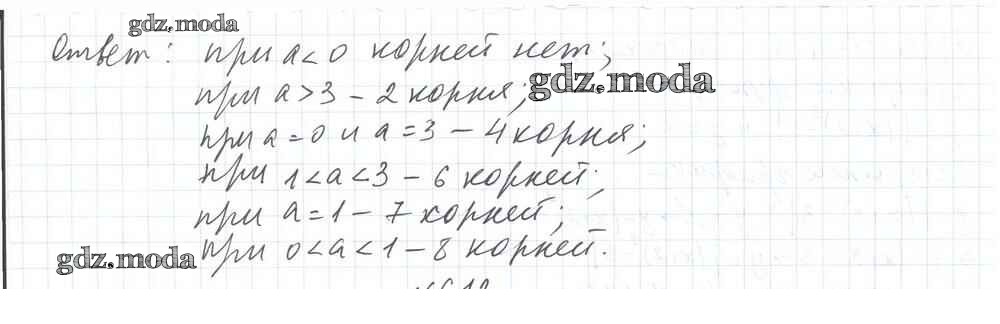 gdz.moda
Ответ: при a < 0 корней нет;
при a > 3 – 2 корня;
gdz.moda
при a = 0 и a = 3 – 4 корня;
при 1 < a < 3 – 6 корней;
при a = 1 – 7 корней;
при 0 < a < 1 – 8 корней.
gdz.moda